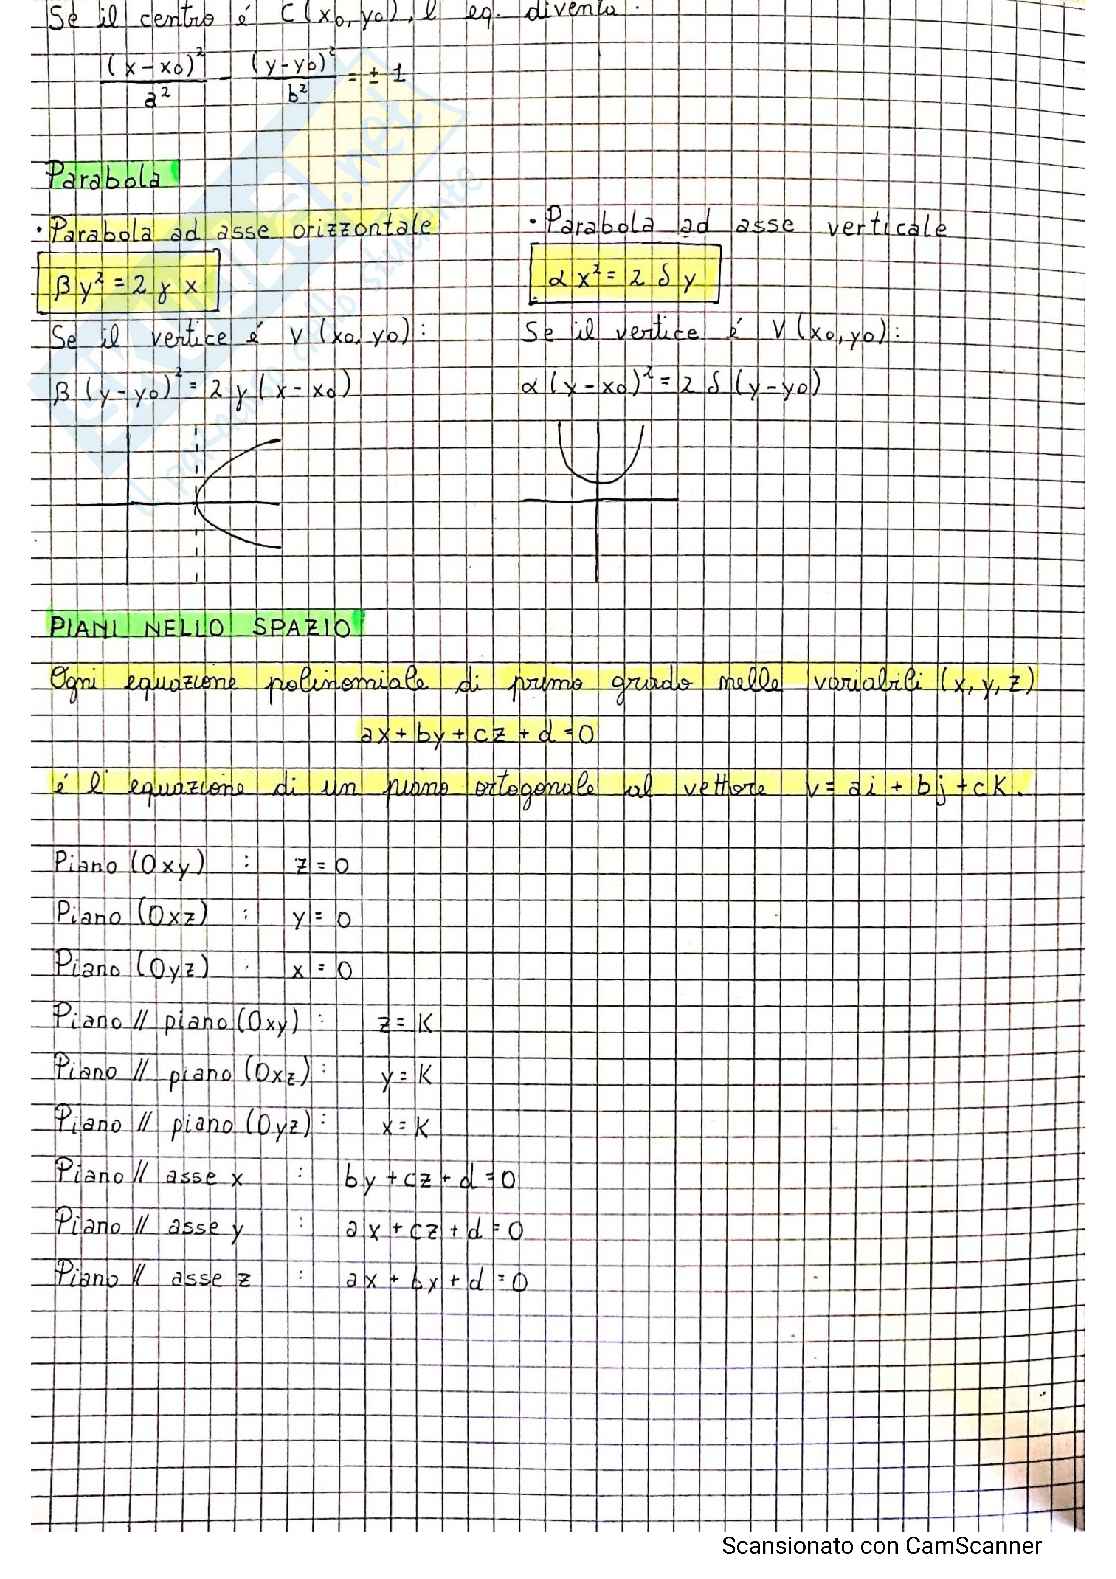 Se il centro é C(x0, y0), l' eq. diventa:
(x-x0)²/a² - (y-y0)²/b² = ± 1
Parabola
· Parabola ad asse orizzontale
βy² = 2γx
Se il vertice é V(x0, y0):
β(y-y0)² = 2γ(x-x0)
· Parabola ad asse verticale
αx² = 2δy
Se il vertice é V(x0, y0):
α(x-x0)² = 2δ(y-y0)
PIANI NELLO SPAZIO
Ogni equazione polinomiale di primo grado nelle variabili (x, y, z)
ax + by + cz + d = 0
é l' equazione di un piano ortogonale al vettore v = ai + bj + ck.
Piano (Oxy) : z = 0
Piano (Oxz) : y = 0
Piano (Oyz) : x = 0
Piano // piano (Oxy): z = K
Piano // piano (Oxz): y = K
Piano // piano (Oyz): x = K
Piano // asse x : by + cz + d = 0
Piano // asse y : ax + cz + d = 0
Piano // asse z : ax + bx + d = 0
Scansionato con CamScanner